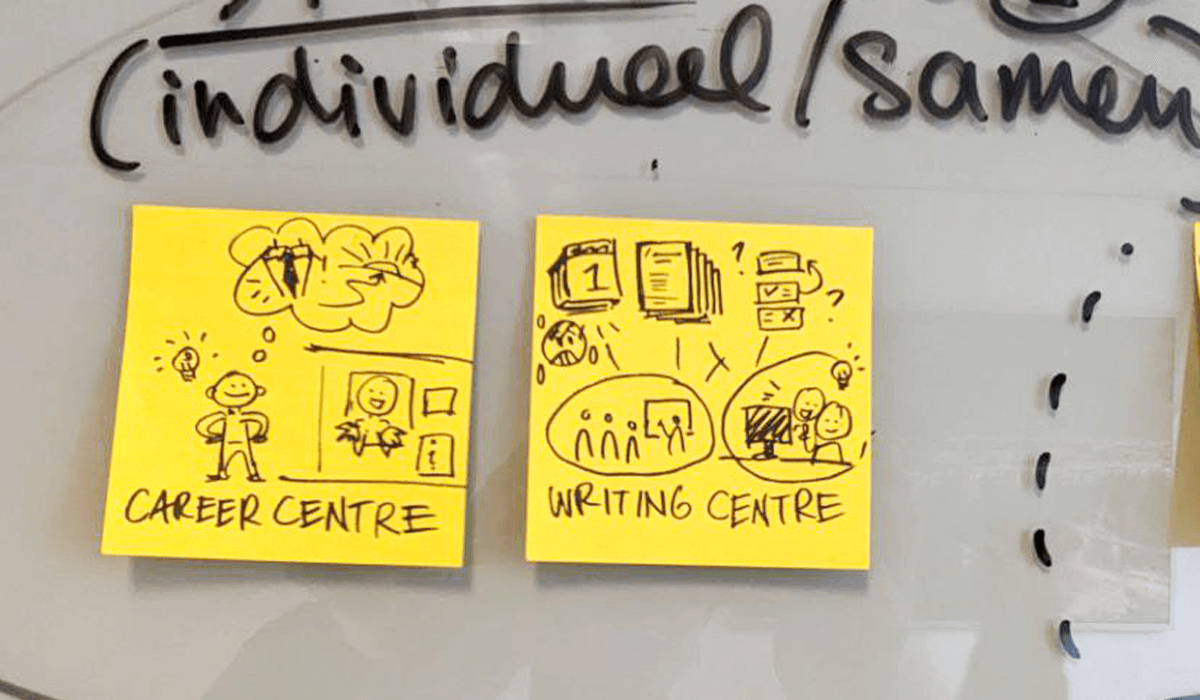 (individueel/samen
1
? 
?
CAREER CENTRE
WRITING CENTRE